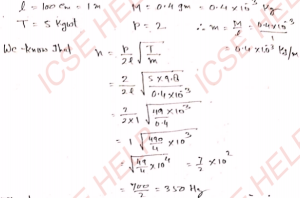 l = 100 cm = 1 m M = 0.4 gm = 0.4 × 10⁻³ kg
T = 5 kg wt P = 2 ∴ m = M/l = 0.4×10⁻³/1
We know that n = P/2l √(T/m) = 0.4 × 10⁻³ kg/m
= 2/2l √(5 × 9.8/0.4×10⁻³)
= 2/2×1 √(49 × 10³/0.4)
= 1 √(490/4 × 10³)
= √(49/4 × 10⁴) = 7/2 × 10²
= 700/2 = 350 Hz
ICSE HELP
ICSE HELP
ICSE HELP